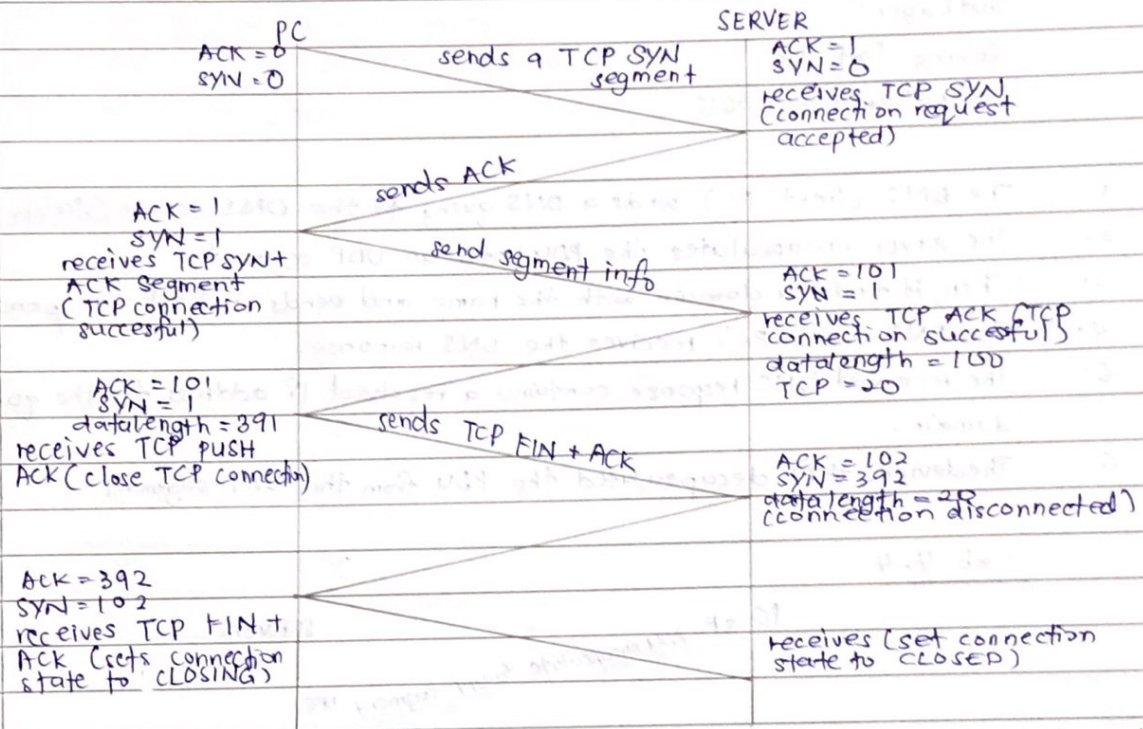 PC
SERVER
ACK = 0
SYN = 0
sends a TCP SYN
segment
ACK = 1
SYN = 0
receives TCP SYN
(connection request
accepted)
sends ACK
ACK = 1
SYN = 1
receives TCP SYN+
ACK Segment
(TCP connection
succesful)
send segment info
ACK = 101
SYN = 1
receives TCP ACK (TCP
connection succesful)
datalength = 100
TCP = 20
ACK = 101
SYN = 1
datalength = 391
receives TCP PUSH
ACK (close TCP connection)
sends TCP FIN + ACK
ACK = 102
SYN = 392
datalength = 20
(connection disconnected)
ACK = 392
SYN = 102
receives TCP FIN +
ACK (sets connection
state to CLOSING)
receives (set connection
state to CLOSED)